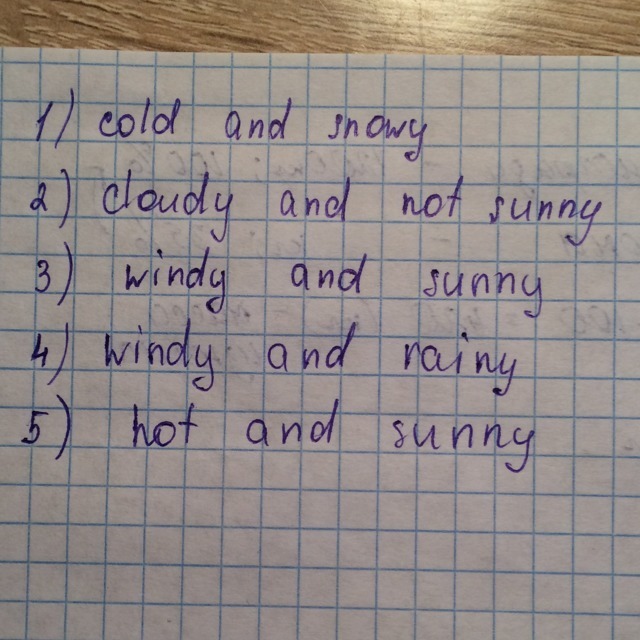 1) cold and snowy
2) cloudy and not sunny
3) windy and sunny
4) windy and rainy
5) hot and sunny